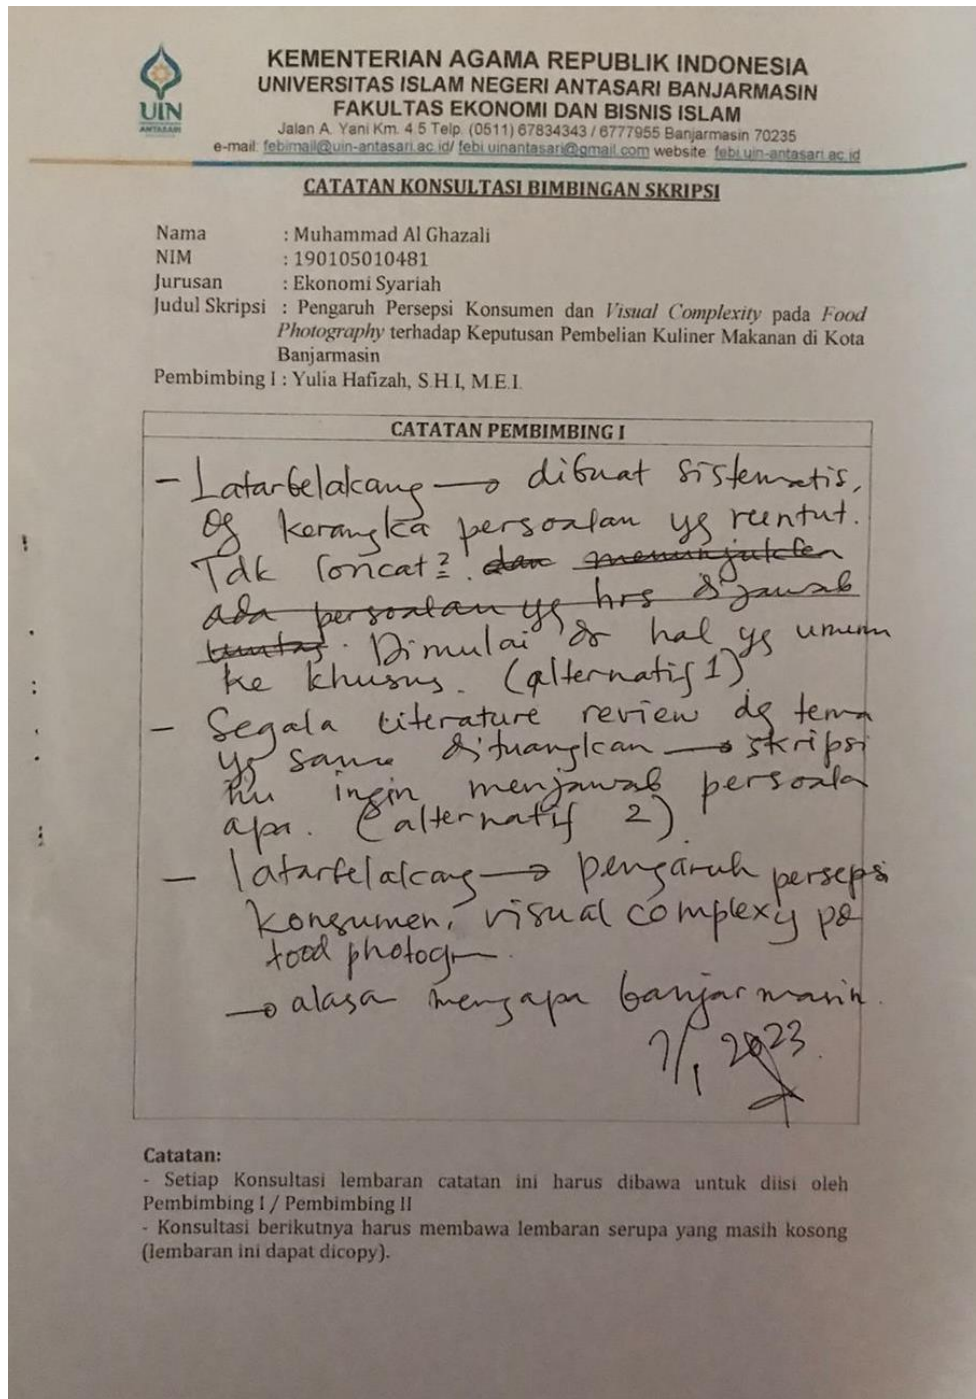 UIN
ANTASARI
KEMENTERIAN AGAMA REPUBLIK INDONESIA
UNIVERSITAS ISLAM NEGERI ANTASARI BANJARMASIN
FAKULTAS EKONOMI DAN BISNIS ISLAM
Jalan A. Yani Km. 4.5 Telp. (0511) 67834343 / 6777955 Banjarmasin 70235
e-mail: febimail@uin-antasari.ac.id/ febi.uinantasari@gmail.com website: febi.uin-antasari.ac.id
CATATAN KONSULTASI BIMBINGAN SKRIPSI
Nama : Muhammad Al Ghazali
NIM : 190105010481
Jurusan : Ekonomi Syariah
Judul Skripsi : Pengaruh Persepsi Konsumen dan Visual Complexity pada Food
Photography terhadap Keputusan Pembelian Kuliner Makanan di Kota
Banjarmasin
Pembimbing I : Yulia Hafizah, S.H.I, M.E.I.
CATATAN PEMBIMBING I
- Latarbelakang → dibuat sistematis,
dg kerangka persoalan yg runtut.
Tdk loncat2. dan menunjukkan
ada persoalan yg hrs dijawab
tuntas. Dimulai dr hal yg umum
ke khusus. (alternatif 1)
- Segala literature review dg tema
yg sama dituangkan → skripsi
ini ingin menjawab persoala
apa. (alternatif 2)
- latarbelakang → pengaruh persepsi
konsumen, visual complexy pd
food photogr
→ alasa mengapa banjarmasin.
7/1 2023.
Catatan:
- Setiap Konsultasi lembaran catatan ini harus dibawa untuk diisi oleh
Pembimbing I / Pembimbing II
- Konsultasi berikutnya harus membawa lembaran serupa yang masih kosong
(lembaran ini dapat dicopy).